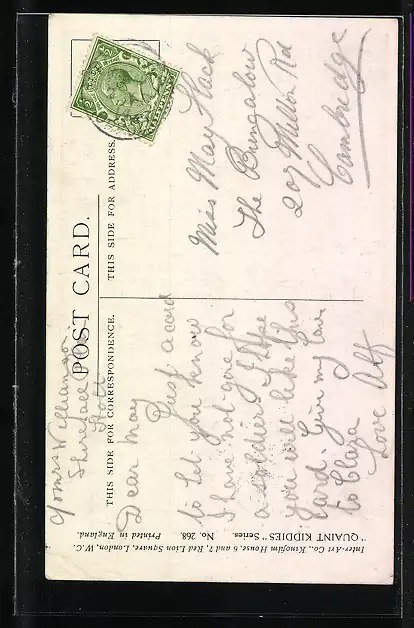 POST CARD.
THIS SIDE FOR CORRESPONDENCE.
THIS SIDE FOR ADDRESS.
Dear May
Just a card
to let you know
I have not gone for
a soldier I hope
you will like this
card. Give my love
to Clara
Love Alf
Miss May Stack
The Bungalow
207 Mill Rd
Cambridge
Inter-Art Co., Kingfilm House, 6 and 7, Red Lion Square, London, W.C.
"QUAINT KIDDIES" Series. No. 268. Printed in England.